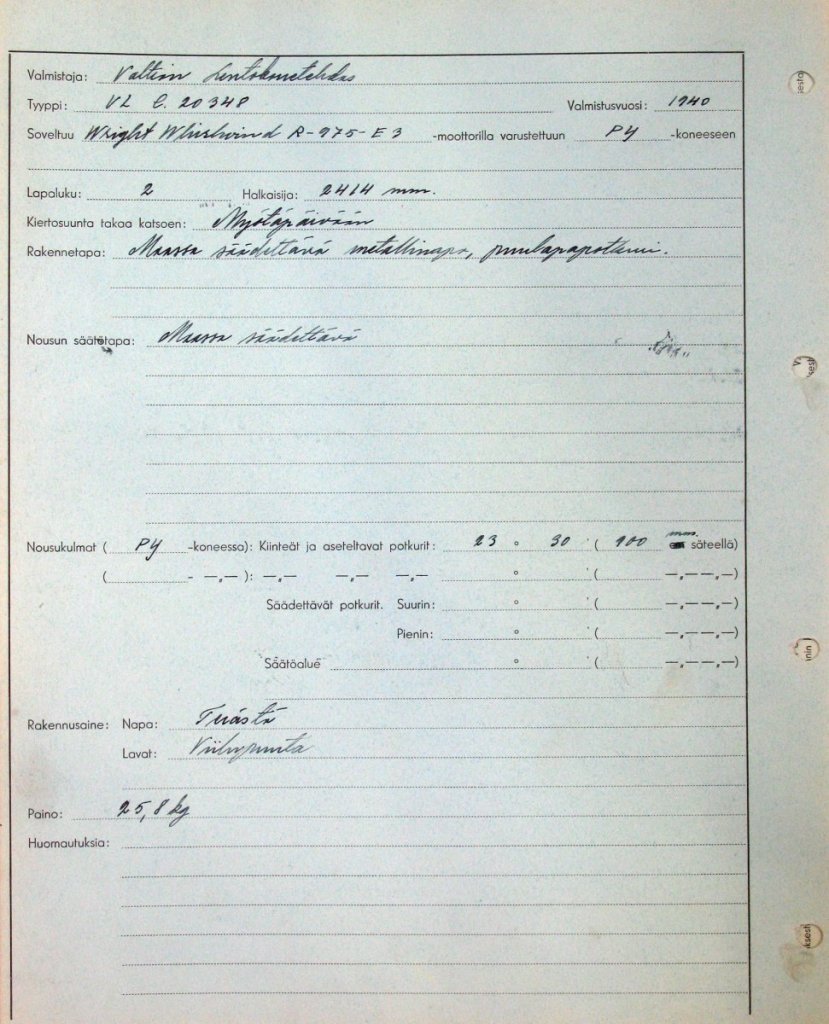 Valmistaja: Valtion Lentokonetehdas
Tyyppi: VL C. 20348 Valmistusvuosi: 1940
Soveltuu Wright Whirlwind R-975-E3 -moottorilla varustettuun PY -koneeseen
Lapaluku: 2 Halkaisija: 2414 mm.
Kiertosuunta takaa katsoen: Myötäpäivään
Rakennetapa: Maassa säädettävä metallinapa, puulapapotkuri.
Nousun säätötapa: Maassa säädettävä
Nousukulmat ( PY -koneessa): Kiinteät ja aseteltavat potkurit: 23 ° 30 ' ( 900 mm. säteellä)
( - —„— ): —„— —„— —„— ° ' ( —„——„—)
Säädettävät potkurit. Suurin: ° ' ( —„——„—)
Pienin: ° ' ( —„——„—)
Säätöalue ° ' ( —„——„—)
Rakennusaine: Napa: Terästä
Lavat: Viilupuuta
Paino: 25,8 kg
Huomautuksia: